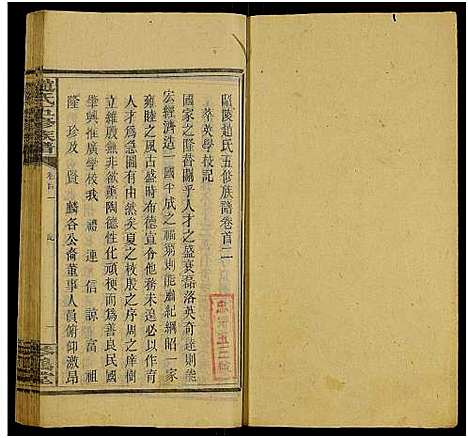 醧陵趙氏五修族譜卷首二
萃英學校記
國家之隆替卜人才之盛衰磊落英奇達則能
宏經濟造一國平成之福窮則能肅紀綱昭一家
雍睦之風古盛時布德宣令他務未遑必以作育
人才為亟亟由然矣夏之校殷之序周之庠樹
立維殷無非欲薰陶德性化頑梗而為善良民國
肇興推廣學校我禮連信諒富祖
隆珍及賢麟各公裔董事人員俯仰激昂
趙氏五修族譜
卷首二
記
一
琴鶴堂